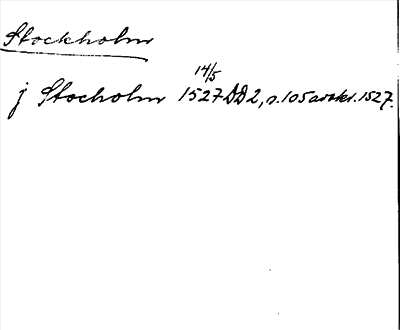 Stockholm
14/5
j Stocholm 1527 DD2, s. 105 avskr. 1527.